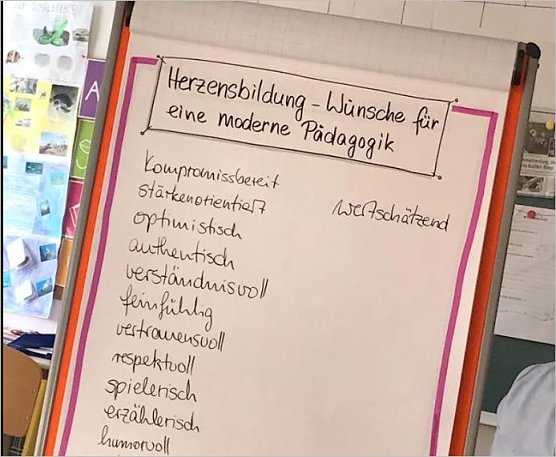 Herzensbildung - Wünsche für
eine moderne Pädagogik
Kompromissbereit
stärkenorientiert
wertschätzend
optimistisch
authentisch
verständnisvoll
feinfühlig
vertrauensvoll
respektvoll
spielerisch
erzählerisch
humorvoll
A